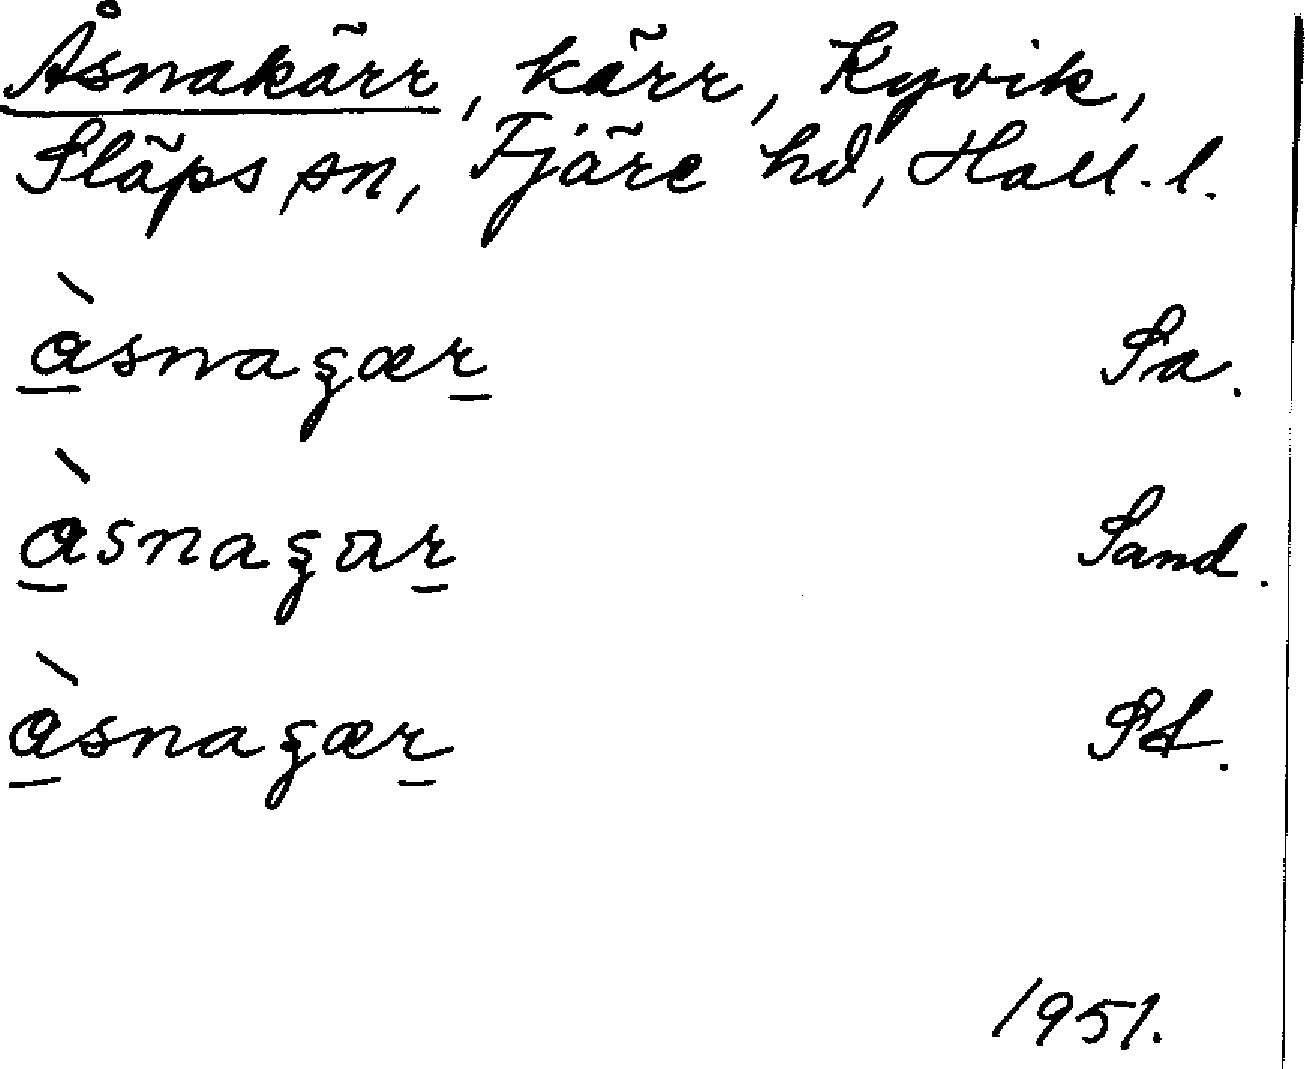 Åsnakärr, kärr, Kyvik,
Släps sn, Fjäre hd, Hall. l.
àsnagær Sa.
àsnagar Sand.
àsnagær St.
1951.